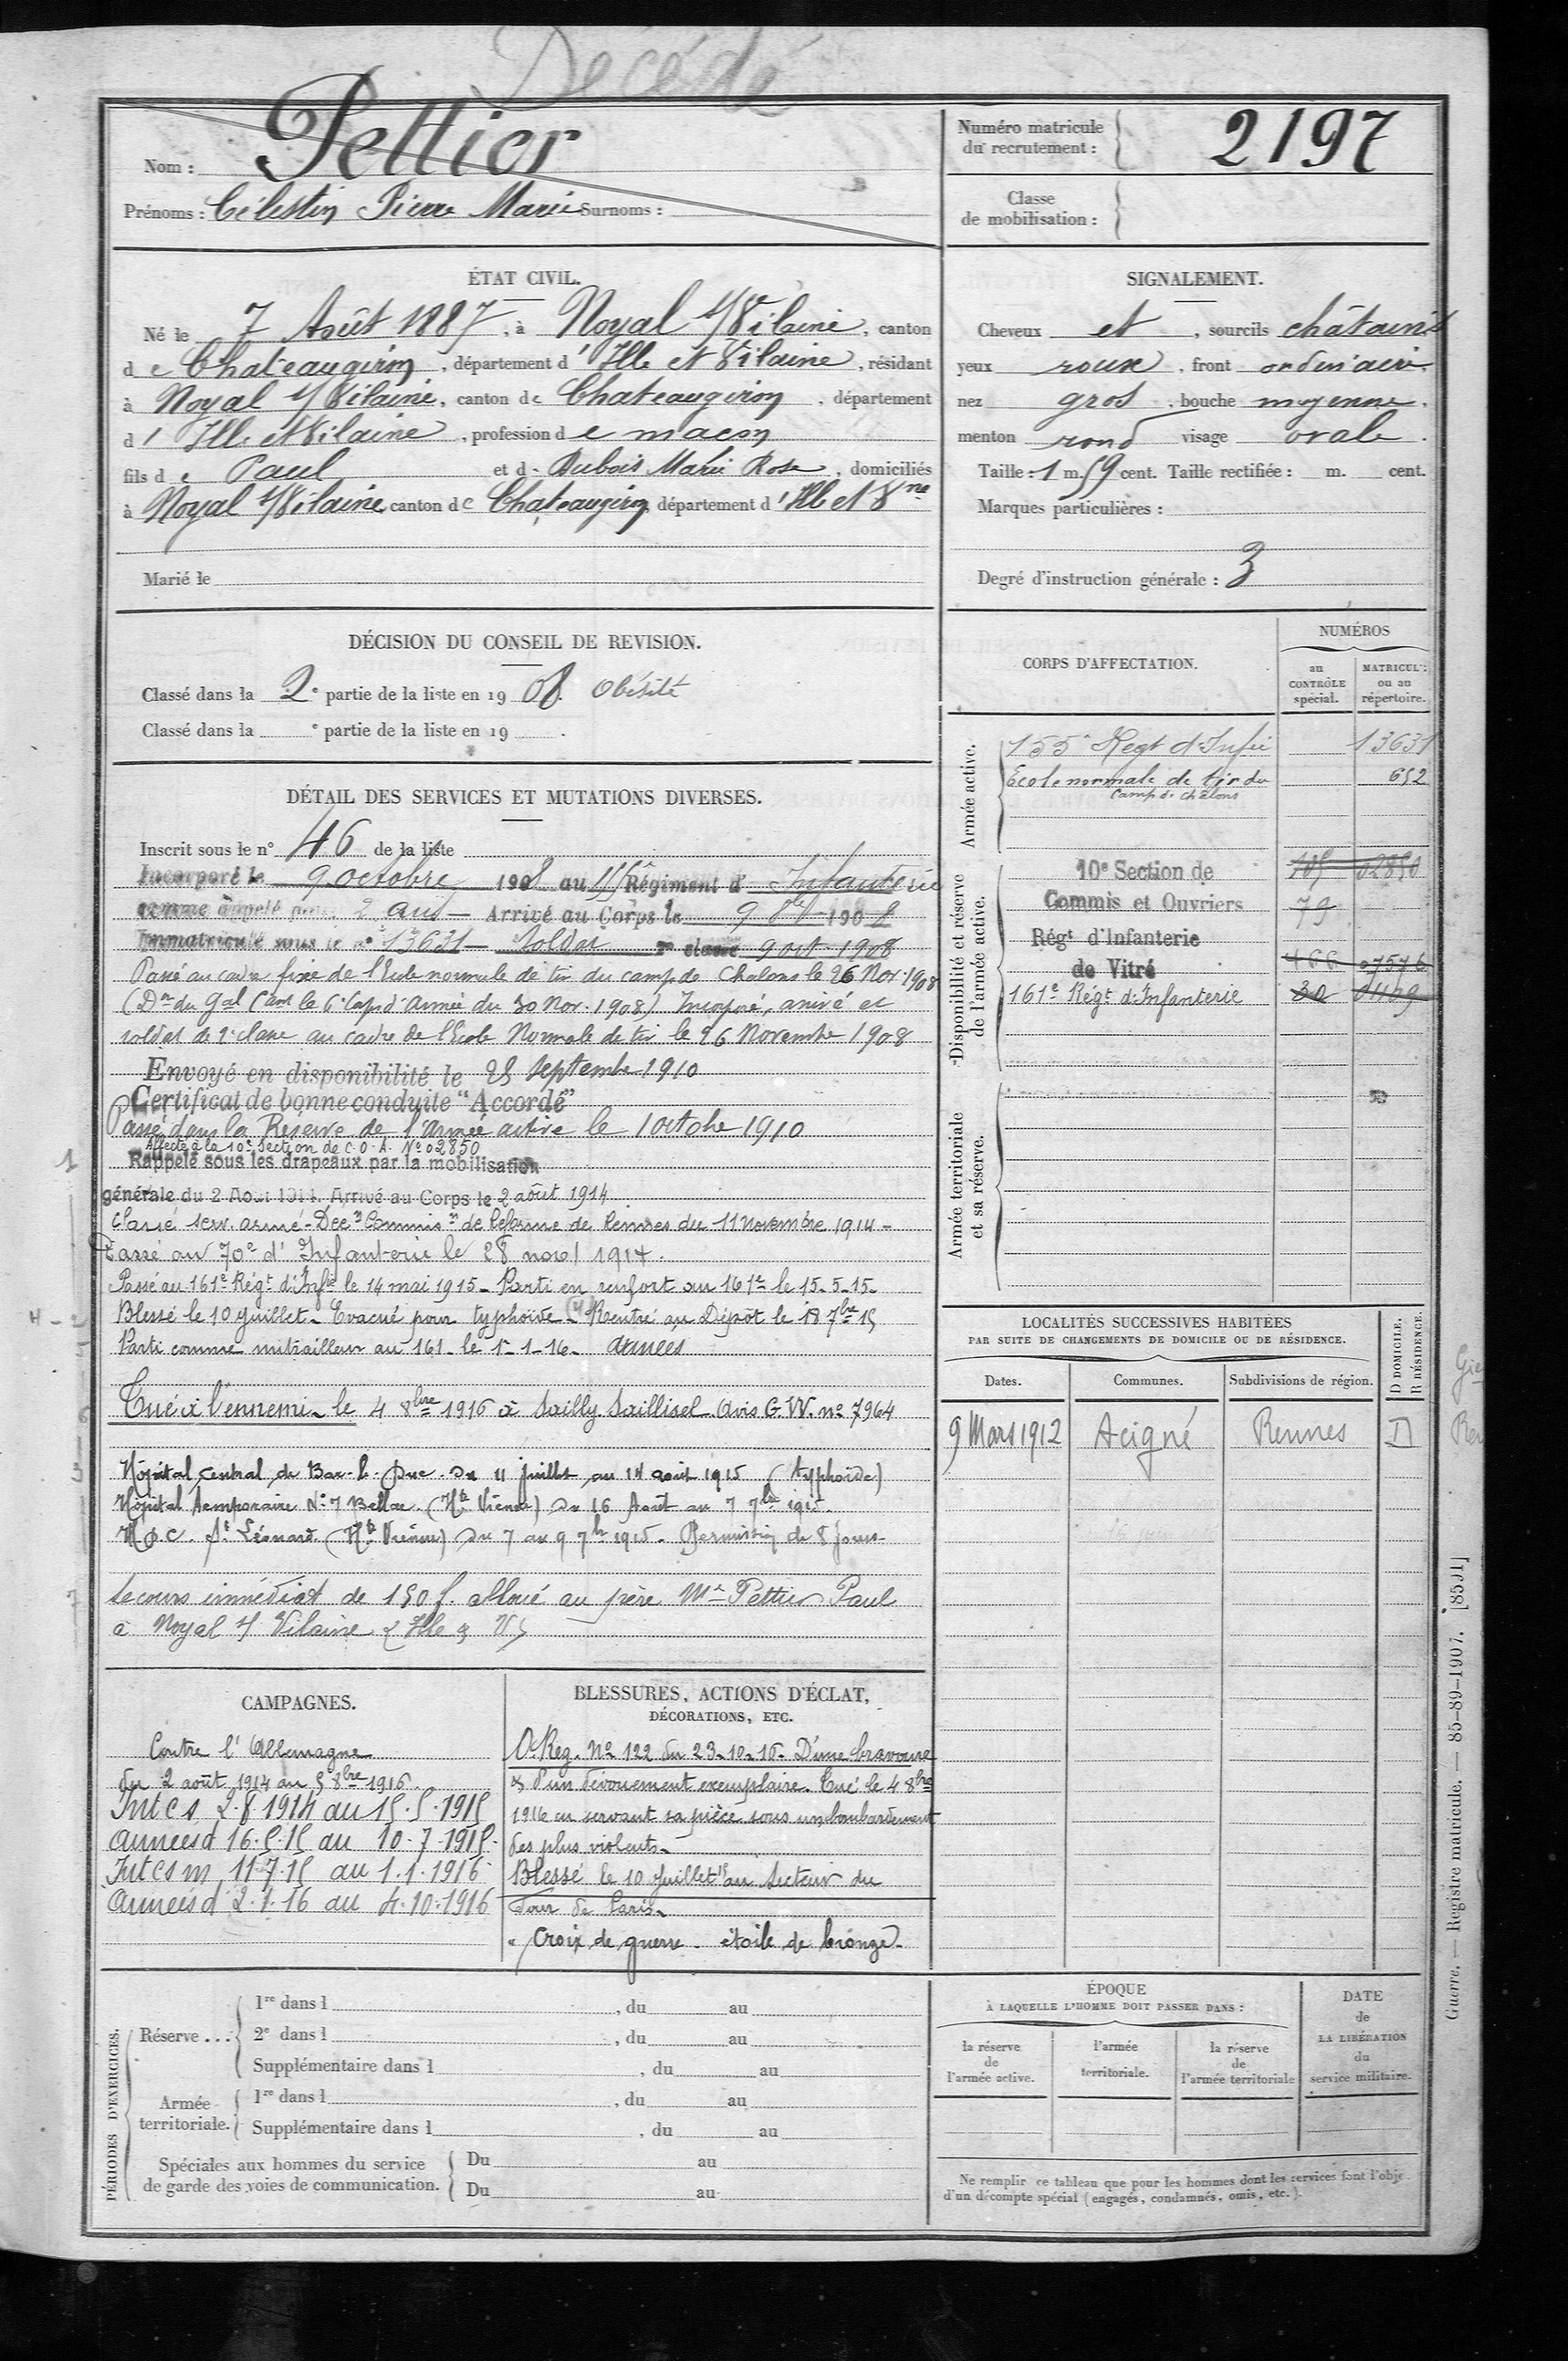 Décédé
Nom : Pettier
Prénoms : Célestin Pierre Marie Surnoms :
Numéro matricule du recrutement : 2197
Classe de mobilisation :
ÉTAT CIVIL.
Né le 7 Août 1887, à Noyal s/Vilaine, canton
de Chateaugiron, département d'Ille et Vilaine, résidant
à Noyal s/Vilaine, canton de Chateaugiron, département
d'Ille et Vilaine, profession de maçon
fils de Paul et d- Dubois Marie Rose, domiciliés
à Noyal s/Vilaine canton de Chateaugiron département d'Ille et Vne
Marié le
SIGNALEMENT.
Cheveux et, sourcils châtains
yeux roux, front ordinaire,
nez gros, bouche moyenne,
menton rond visage ovale.
Taille : 1 m. 59 cent. Taille rectifiée : m. cent.
Marques particulières :
Degré d'instruction générale : 3
DÉCISION DU CONSEIL DE REVISION.
Classé dans la 2e partie de la liste en 1908. Obésité
Classé dans la e partie de la liste en 19 .
DÉTAIL DES SERVICES ET MUTATIONS DIVERSES.
Inscrit sous le n° 46 de la liste
Incorporé le 9 octobre 1908 au 155 Régiment d'Infanterie
comme appelé pour 2 ans — Arrivé au Corps le 9 8bre 1908
Immatriculé sous le n° 13631 — Soldat 2e classe 9 oct. 1908
Passé au cadre fixe de l'Ecole normale de tir du camp de Chalons le 26 Nov. 1908
(Don du Gal Cant le 6e Corps d'Armée du 30 Nov. 1908) Incorporé, arrivé et
soldat de 2e classe au cadre de l'Ecole Normale de tir le 26 Novembre 1908
Envoyé en disponibilité le 25 septembre 1910
Certificat de bonne conduite "Accordé"
Passé dans la Réserve de l'armée active le 1 octobre 1910
Affecté à la 10e Section de C.O.A. N° 02850
Rappelé sous les drapeaux par la mobilisation
générale du 2 Août 1914. Arrivé au Corps le 2 août 1914
Classé serv. armé - Déc.on Commis.on de Réforme de Rennes du 11 novembre 1914 -
Passé au 70e d'Infanterie le 28 nov 1914.
Passé au 161e Régt d'Infie le 14 mai 1915 - Parti en renfort au 161e le 15-5-15-
Blessé le 10 Juillet - Evacué pour typhoïde - Rentré au Dépôt le 18 7bre 15
Parti comme mitrailleur au 161 - le 1-1-16 - armées
Tué à l'ennemi - le 4 8bre 1916 à Sailly Saillisel. Avis G.W. n° 7964
Hôpital Central de Bar-le-Duc du 11 juillet au 14 août 1915 (typhoïde)
Hôpital temporaire N° 7 Bellac. (Hte Vienne) du 16 Août au 7 7bre 1915.
H.D.C. St Léonard. (Hte Vienne) du 7 au 9 7bre 1915. Permission de 8 jours.
Secours immédiat de 150 f. alloué au père Mr Pettier Paul
à Noyal s/ Vilaine (Ille & V)
CORPS D'AFFECTATION.
NUMÉROS
au CONTRÔLE spécial.
MATRICULE ou au répertoire.
Armée active.
155e Regt d'Infie 13631
Ecole normale de tir du 652
Camp de chalons
Disponibilité et réserve de l'armée active.
10e Section de 105 02850
Commis et Ouvriers 79
Régt d'Infanterie
de Vitré 466 07576
161e Régt d'Infanterie 30 01109
Armée territoriale et sa réserve.
LOCALITÉS SUCCESSIVES HABITÉES
PAR SUITE DE CHANGEMENTS DE DOMICILE OU DE RÉSIDENCE.
D DOMICILE.
R RÉSIDENCE.
Dates. Communes. Subdivisions de région.
9 Mars 1912 Acigné Rennes D
CAMPAGNES.
Contre l'Allemagne
du 2 août 1914 au 5 8bre 1916.
Int CS 2.8.1914 au 15.5.1915
armées d 16.5.15 au 10.7.1915.
Int CS m 11.7.15 au 1.1.1916
armées d 2.1.16 au 4.10.1916
BLESSURES, ACTIONS D'ÉCLAT,
DÉCORATIONS, ETC.
O. Reg. N° 122 du 23-10-16- D'une bravoure
& d'un dévouement exemplaire. Tué le 4 8bre
1916 en servant sa pièce sous un bombardement
des plus violents.
Blessé le 10 Juillet 15 au Secteur du
Four de Paris.
Croix de guerre. étoile de bronze.
PÉRIODES D'EXERCICES.
Réserve ...
1re dans l , du au
2e dans l , du au
Supplémentaire dans l , du au
Armée territoriale.
1re dans l , du au
Supplémentaire dans l , du au
Spéciales aux hommes du service
de garde des voies de communication.
Du au
Du au
ÉPOQUE
À LAQUELLE L'HOMME DOIT PASSER DANS :
la réserve de l'armée active.
l'armée territoriale.
la réserve de l'armée territoriale
DATE de LA LIBÉRATION du service militaire.
Ne remplir ce tableau que pour les hommes dont les services font l'obje
d'un décompte spécial (engagés, condamnés, omis, etc.).
Guerre. — Registre matricule. — 85-89-1907. [8501]